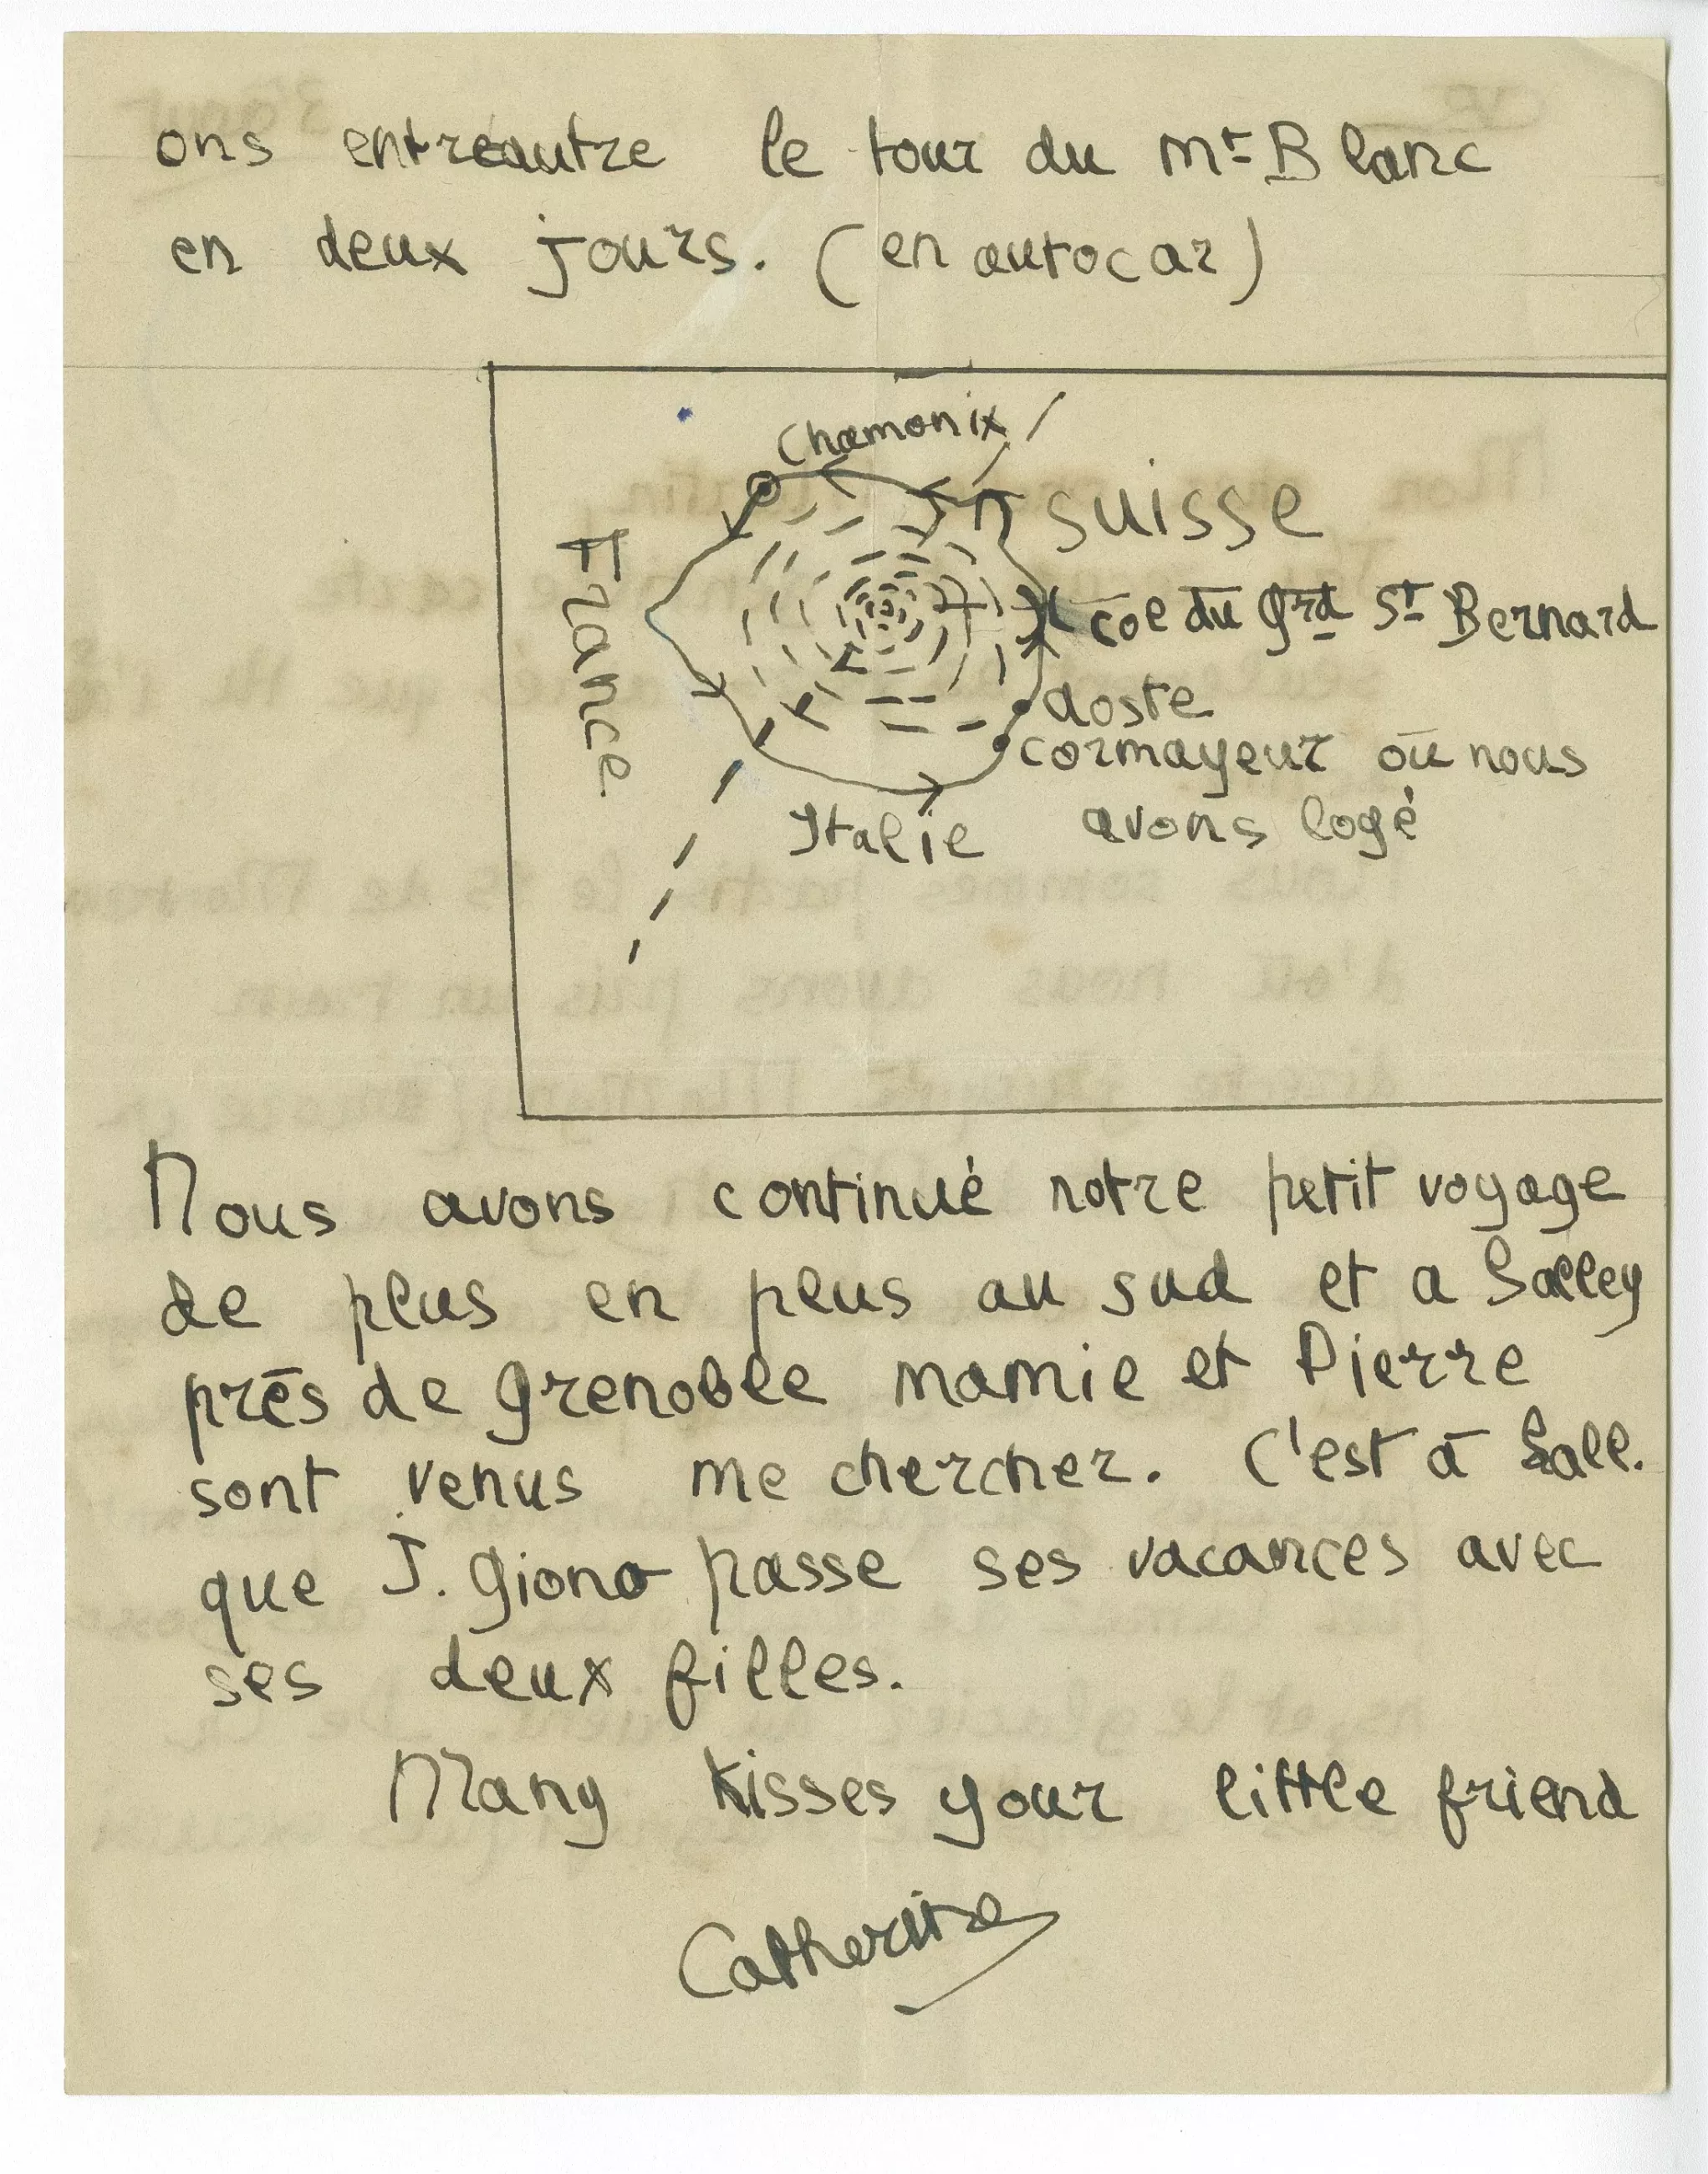 ons entreautre le tour du Mt Blanc
en deux jours. (en autocar)
Chamonix
SUISSE
France
col du grd St Bernard
aoste
cormayeur où nous
avons logé
Italie
Nous avons continué notre petit voyage
de plus en plus au sud et a Salley
près de grenoble mamie et Pierre
sont venus me chercher. C'est à Sall.
que J. giono passe ses vacances avec
ses deux filles.
Many kisses your little friend
Catherine